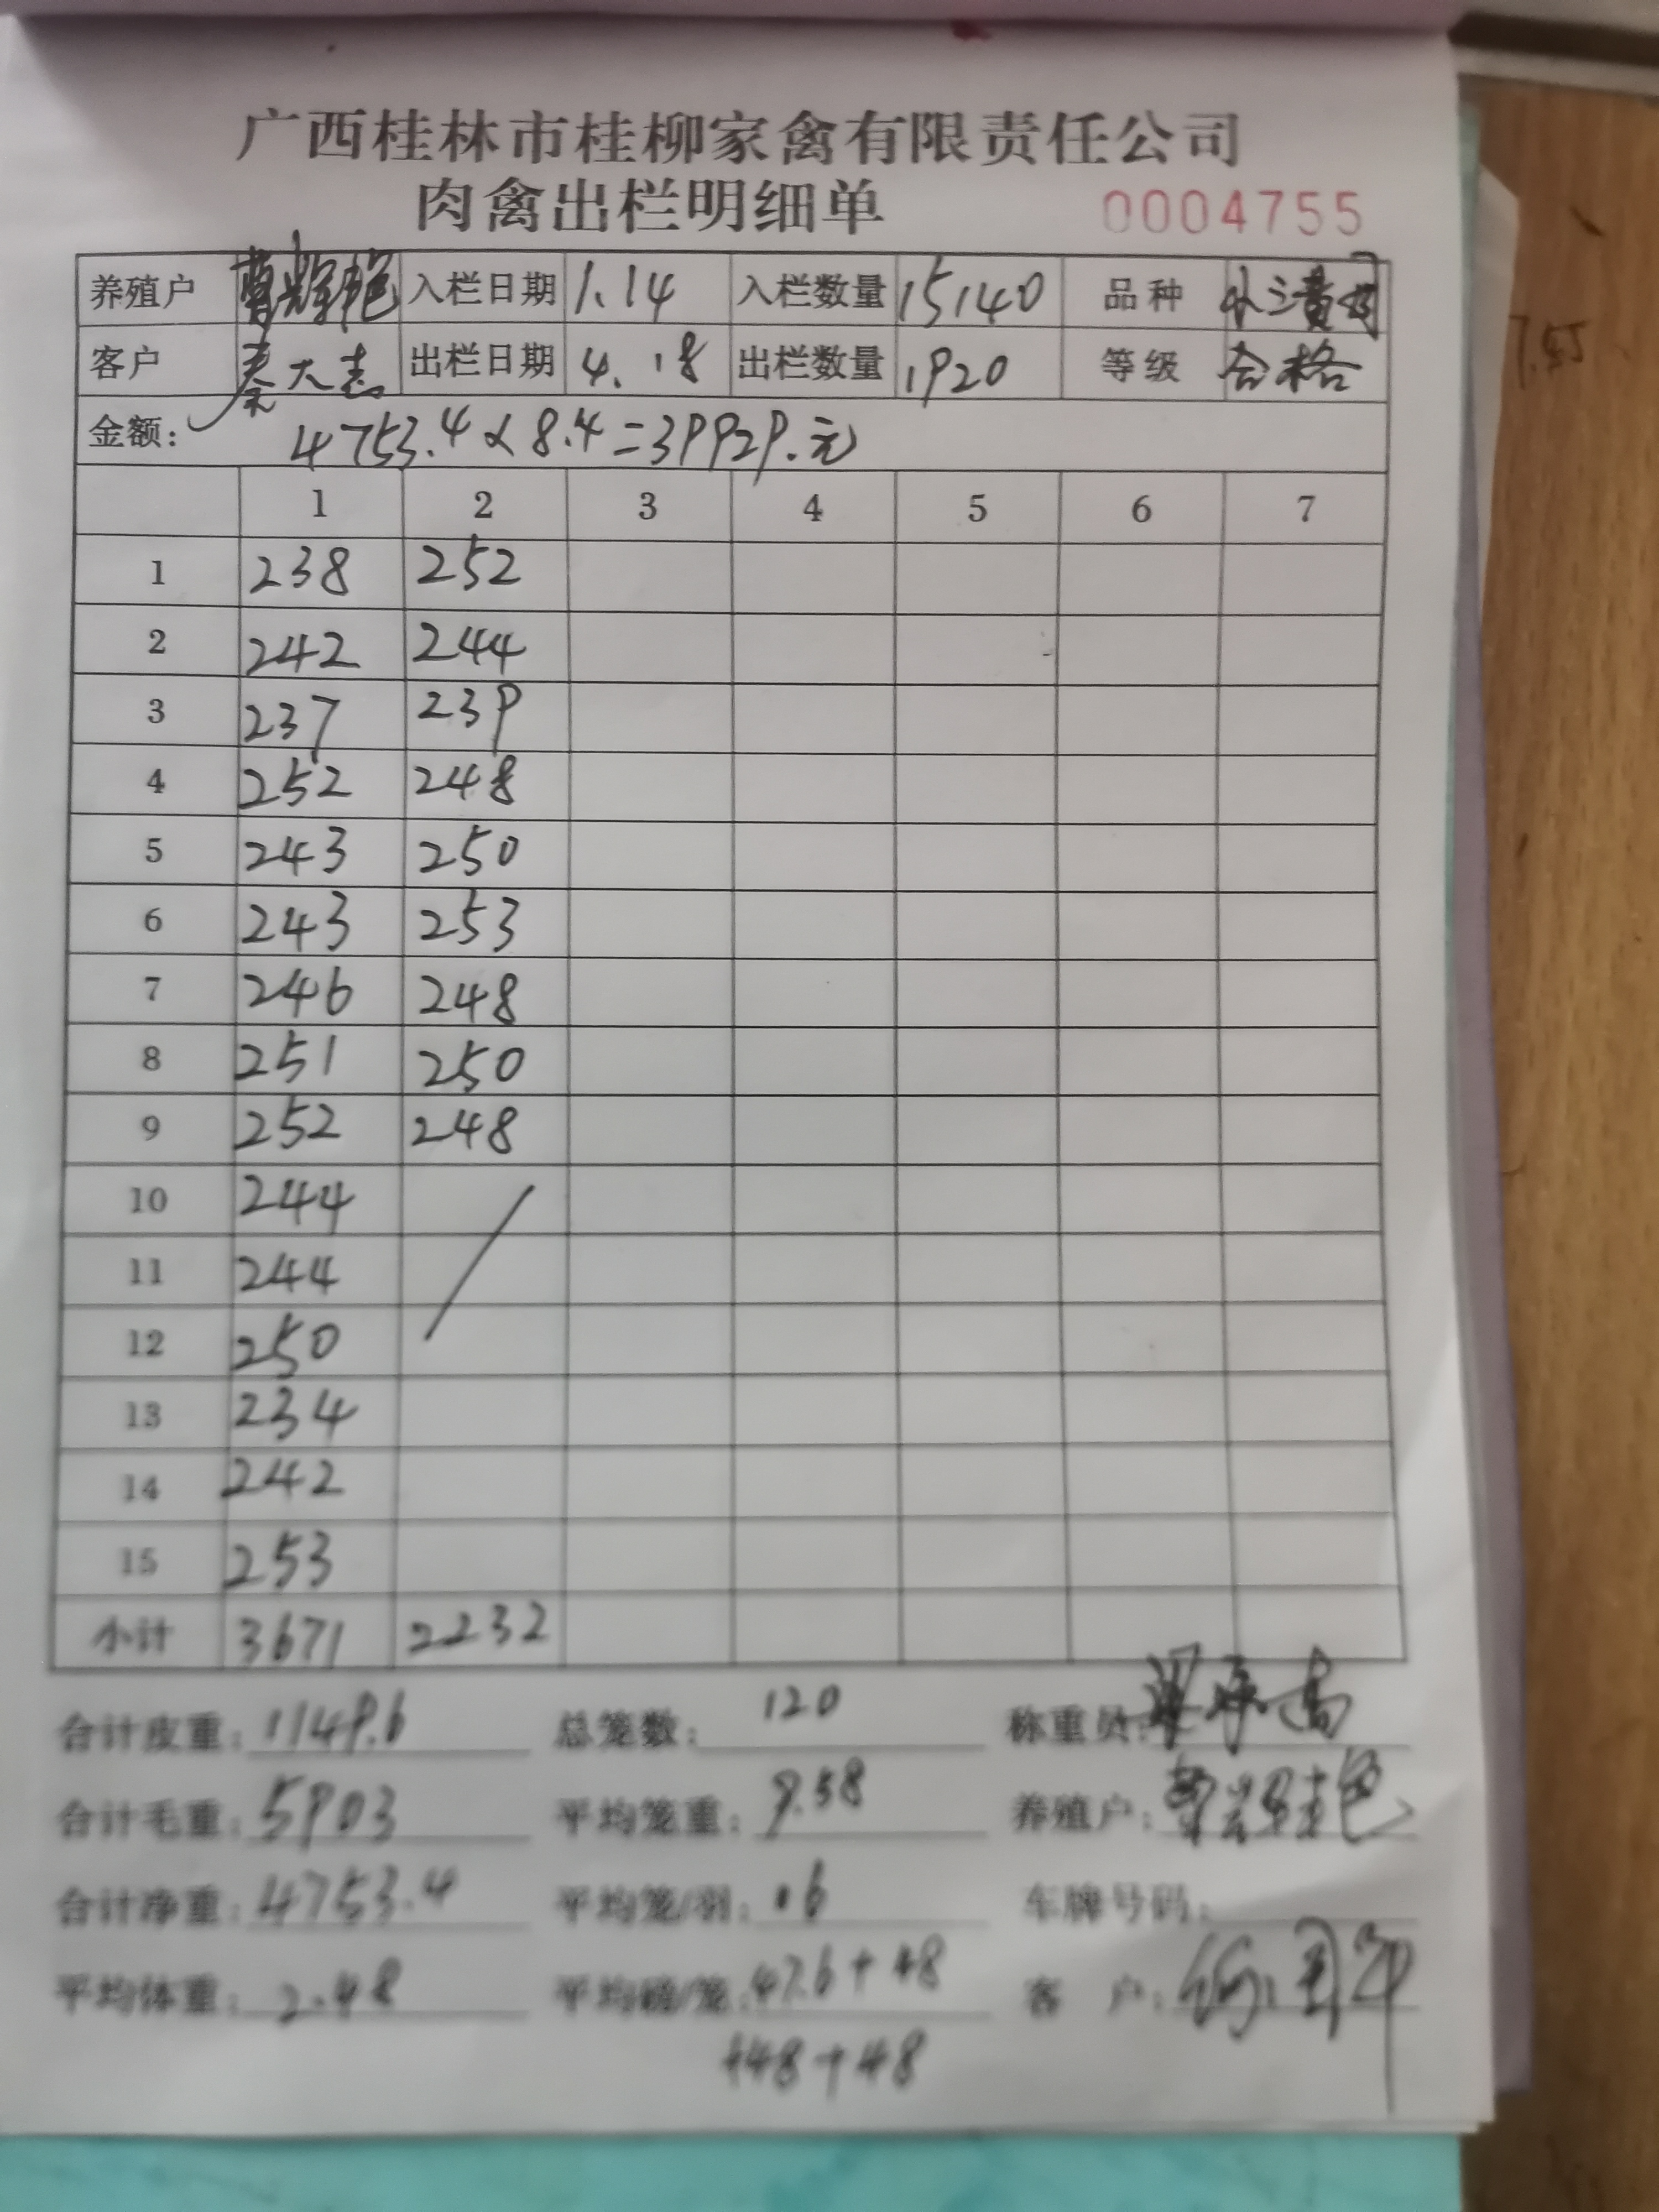 广西桂林市桂柳家禽有限责任公司
肉禽出栏明细单 0004755
养殖户 入栏日期 1.14 入栏数量 15140 品种
客户 秦大志 出栏日期 4.18 出栏数量 1920 等级 合格
金额: 4753.4×8.4=39929.元
1 2 3 4 5 6 7
1 238 252
2 242 244
3 237 239
4 252 248
5 243 250
6 243 253
7 246 248
8 251 250
9 252 248
10 244
11 244
12 250
13 234
14 242
15 253
小计 3671 2232
合计皮重: 1149.6 总笼数: 120 称重员:
合计毛重: 5903 平均笼重: 9.58 养殖户:
合计净重: 4753.4 平均笼/羽: 16 车牌号码:
平均体重: 2.48 平均磅/笼: 47.6+48 客 户:
+48+48